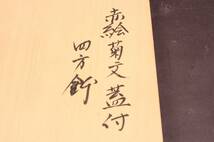 赤絵菊文蓋付
四方鉢